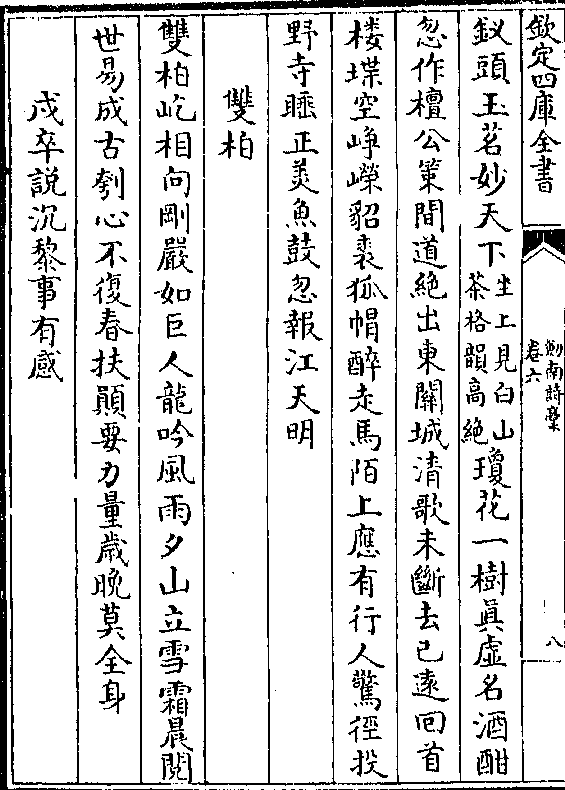 欽定四庫全書
劍南詩藁
卷六
八
釵頭玉茗妙天下坐上見白山茶格韻高絶瓊花一樹真虚名酒酣
忽作檀公策間道絶出東關城清歌未斷去已遠回首
楼堞空崢嶸貂裘狐帽醉走馬陌上應有行人驚徑投
野寺睡正美魚鼓忽報江天明
雙柏
雙柏屹相向剛嚴如巨人龍吟風雨夕山立雪霜晨閲
世易成古刳心不復春扶顛要力量歳晩莫全身
戍卒說沉黎事有感